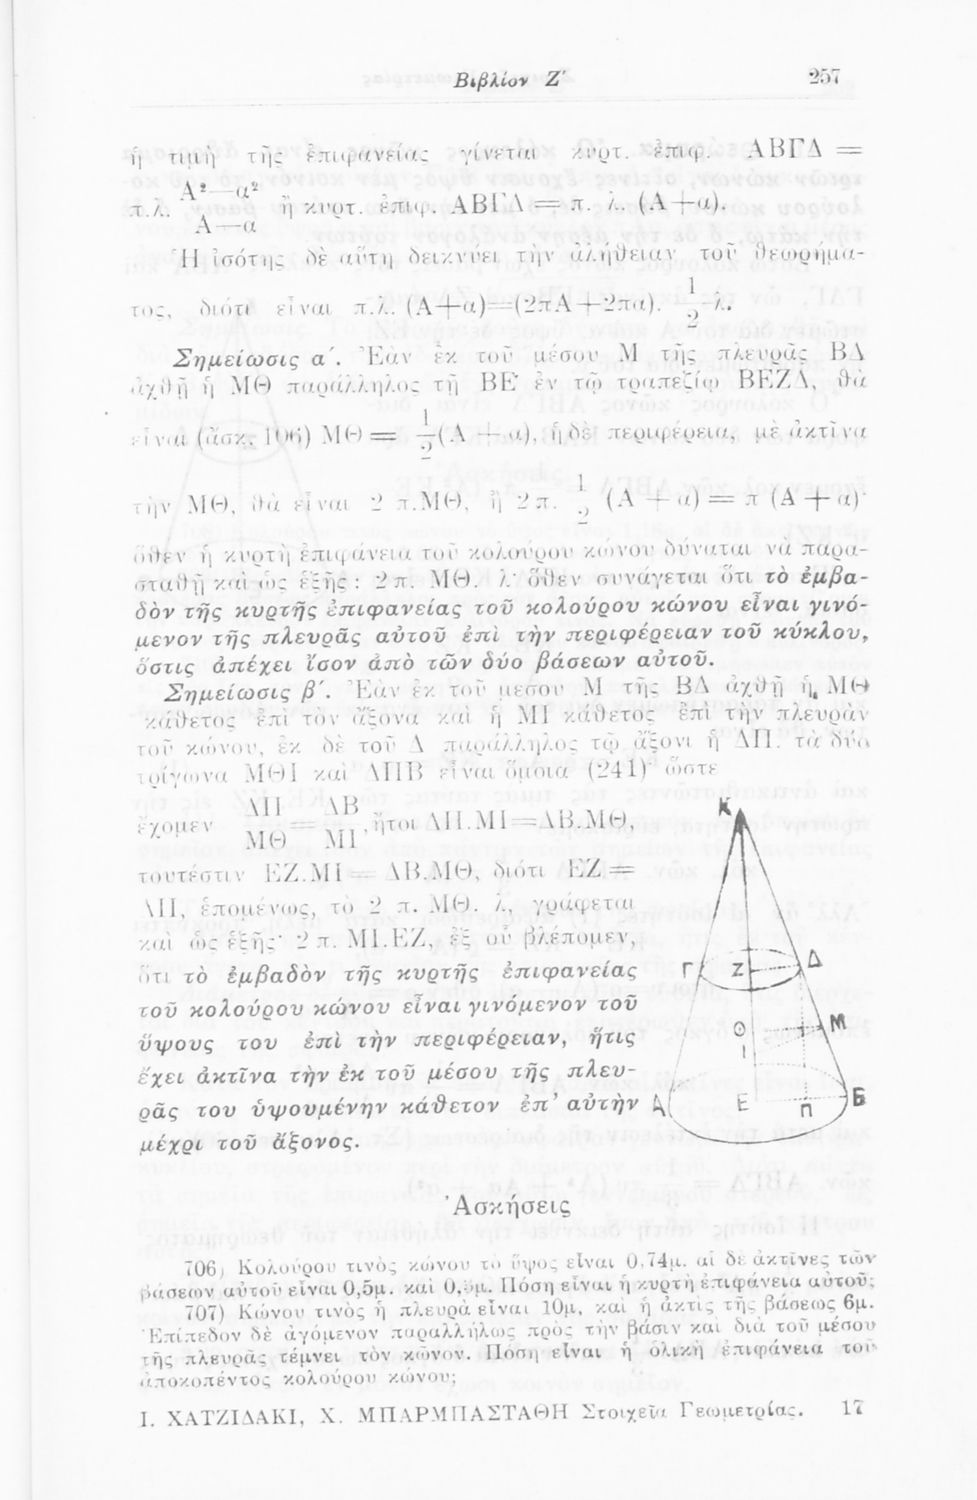 Βιβλίον Ζ΄ 257
ἡ τιμὴ τῆς ἐπιφανείας γίνεται κυρτ. ἐπιφ. ΑΒΓΔ =
π.λ. Α²—α² / Α—α ἢ κυρτ. ἐπιφ. ΑΒΓΔ = π. λ. (Α+α).
Ἡ ἰσότης δὲ αὕτη δεικνύει τὴν ἀλήθειαν τοῦ θεωρήμα-
τος, διότι εἶναι π.λ. (Α+α)=(2πΑ+2πα). 1/2 λ.
Σημείωσις α΄. Ἐὰν ἐκ τοῦ μέσου Μ τῆς πλευρᾶς ΒΔ
ἀχθῇ ἡ ΜΘ παράλληλος τῇ ΒΕ ἐν τῷ τραπεζίῳ ΒΕΖΔ, θὰ
εἶναι (ἄσκ. 106) ΜΘ = 1/2 (Α + α), ἡ δὲ περιφέρεια, μὲ ἀκτῖνα
τὴν ΜΘ, θὰ εἶναι 2 π.ΜΘ, ἢ 2 π. 1/2 (Α + α) = π (Α + α)·
ὅθεν ἡ κυρτὴ ἐπιφάνεια τοῦ κολούρου κώνου δύναται νὰ παρα-
σταθῇ καὶ ὡς ἑξῆς : 2 π. ΜΘ. λ· ὅθεν συνάγεται ὅτι τὸ ἐμβα-
δὸν τῆς κυρτῆς ἐπιφανείας τοῦ κολούρου κώνου εἶναι γινό-
μενον τῆς πλευρᾶς αὐτοῦ ἐπὶ τὴν περιφέρειαν τοῦ κύκλου,
ὅστις ἀπέχει ἴσον ἀπὸ τῶν δύο βάσεων αὐτοῦ.
Σημείωσις β΄. Ἐὰν ἐκ τοῦ μέσου Μ τῆς ΒΔ ἀχθῇ ἡ ΜΘ
κάθετος ἐπὶ τὸν ἄξονα καὶ ἡ ΜΙ κάθετος ἐπὶ τὴν πλευρὰν
τοῦ κώνου, ἐκ δὲ τοῦ Δ παράλληλος τῷ ἄξονι ἡ ΔΠ, τὰ δύο
τρίγωνα ΜΘΙ καὶ ΔΠΒ εἶναι ὅμοια (241)· ὥστε
ἔχομεν ΔΠ/ΜΘ = ΔΒ/ΜΙ, ἤτοι ΔΠ.ΜΙ=ΔΒ.ΜΘ,
τουτέστιν ΕΖ.ΜΙ = ΔΒ.ΜΘ, διότι ΕΖ=
ΔΠ, ἑπομένως, τὸ 2 π. ΜΘ. λ, γράφεται
καὶ ὡς ἑξῆς· 2 π. ΜΙ.ΕΖ, ἐξ οὗ βλέπομεν,
ὅτι τὸ ἐμβαδὸν τῆς κυρτῆς ἐπιφανείας
τοῦ κολούρου κώνου εἶναι γινόμενον τοῦ
ὕψους του ἐπὶ τὴν περιφέρειαν, ἥτις
ἔχει ἀκτῖνα τὴν ἐκ τοῦ μέσου τῆς πλευ-
ρᾶς του ὑψουμένην κάθετον ἐπ' αὐτὴν
μέχρι τοῦ ἄξονος.
Κ
Γ Ζ Δ
Θ Μ
Ι
Α Ε Π Β
Ἀσκήσεις
706) Κολούρου τινὸς κώνου τὸ ὕψος εἶναι 0,74μ. αἱ δὲ ἀκτῖνες τῶν
βάσεων αὐτοῦ εἶναι 0,5μ. καὶ Πόση εἶναι ἡ κυρτὴ ἐπιφάνεια αὐτοῦ;
707) Κώνου τινὸς ἡ πλευρὰ εἶναι 10μ, καὶ ἡ ἀκτὶς τῆς βάσεως 6μ.
Ἐπίπεδον δὲ ἀγόμενον παραλλήλως πρὸς τὴν βάσιν καὶ διὰ τοῦ μέσου
τῆς πλευρᾶς τέμνει τὸν κῶνον. Πόση εἶναι ἡ ὁλικὴ ἐπιφάνεια τοῦ
ἀποκοπέντος κολούρου κώνου;
Ι. ΧΑΤΖΙΔΑΚΙ, Χ. ΜΠΑΡΜΠΑΣΤΑΘΗ Στοιχεῖα Γεωμετρίας. 17